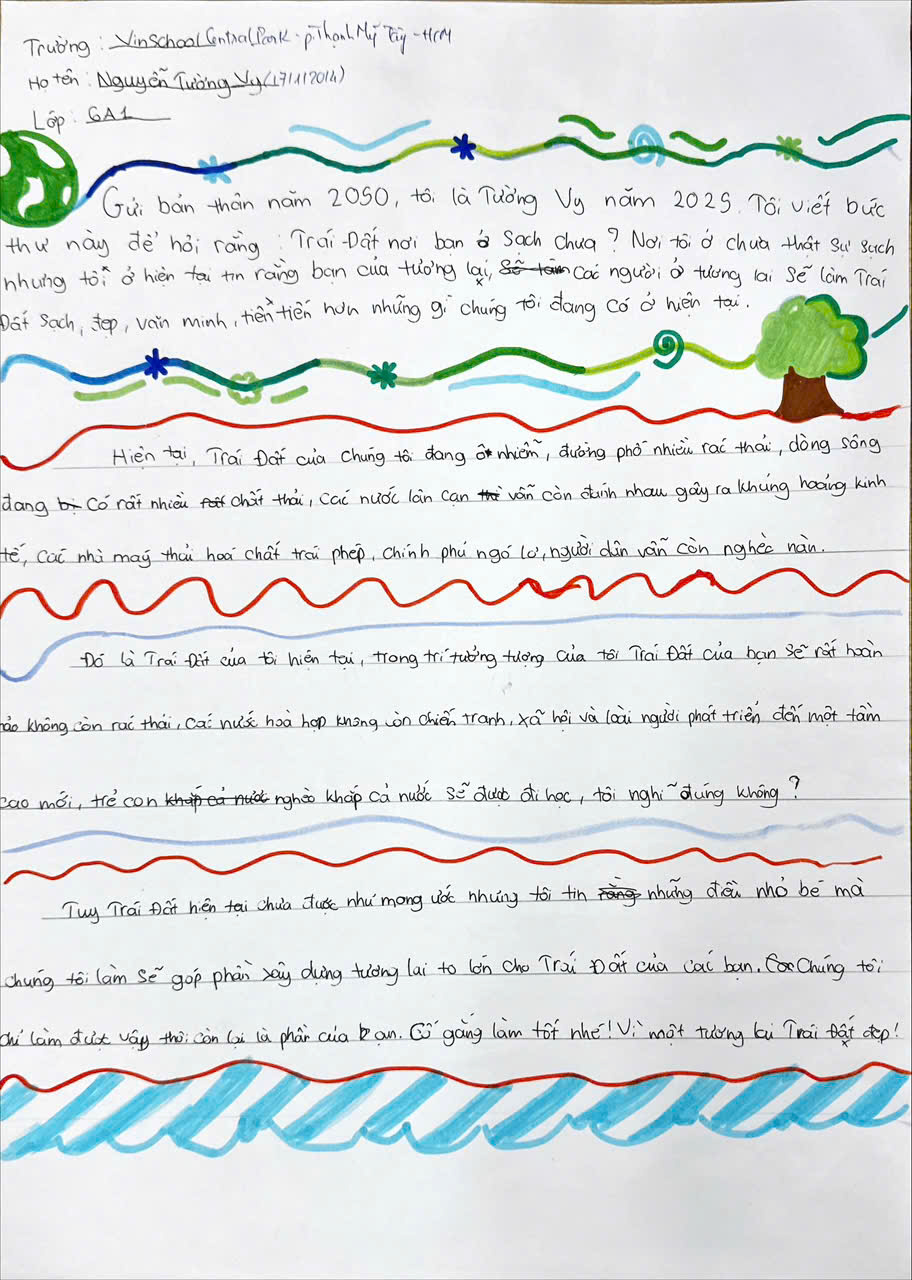 Trường : Vinschool Central Park - p.Thạnh Mỹ Tây - HCM
Họ tên : Nguyễn Tường Vy (17/1/2014)
Lớp : 6A1
Gửi bản thân năm 2050, tôi là Tường Vy năm 2025. Tôi viết bức
thư này để hỏi rằng : Trái Đất nơi bạn ở sạch chưa ? Nơi tôi ở chưa thật sự sạch
nhưng tôi ở hiện tại tin rằng bạn của tương lai, các người ở tương lai sẽ làm Trái
Đất sạch, đẹp, văn minh, tiền tiến hơn những gì chúng tôi đang có ở hiện tại.
Hiện tại, Trái Đất của chúng tôi đang ô nhiễm, đường phố nhiều rác thải, dòng sông
đang có rất nhiều chất thải, các nước lân cạn vẫn còn đánh nhau gây ra khủng hoảng kinh
tế, các nhà máy thải hoá chất trái phép, chính phủ ngó lơ, người dân vẫn còn nghèo nàn.
Đó là Trái Đất của tôi hiện tại, trong trí tưởng tượng của tôi Trái Đất của bạn sẽ rất hoàn
hảo không còn rác thải, các nước hoà hợp không còn chiến tranh, xã hội và loài người phát triển đến một tầm
cao mới, trẻ con khắp cả nước nghèo khắp cả nước sẽ được đi học, tôi nghĩ đúng không ?
Tuy Trái Đất hiện tại chưa được như mong ước nhưng tôi tin rằng những điều nhỏ bé mà
chúng tôi làm sẽ góp phần xây dựng tương lai to lớn cho Trái Đất của các bạn. Chúng tôi
chỉ làm được vậy thôi còn lại là phần của bạn. Cố gắng làm tốt nhé! Vì một tương lai Trái Đất đẹp!